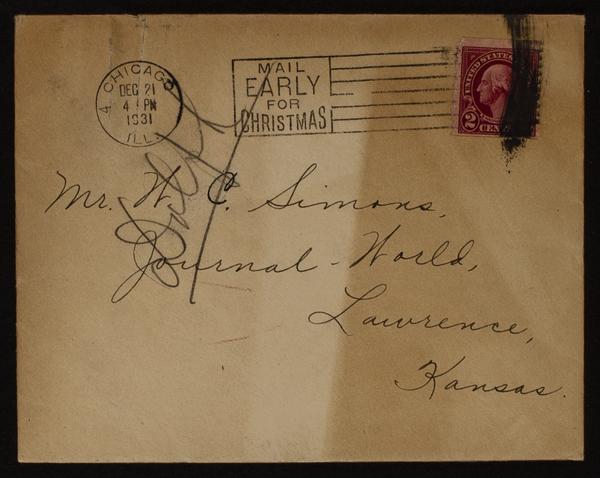 CHICAGO
4
DEC 21
4 PM
1931
ILL.
MAIL
EARLY
FOR
CHRISTMAS
UNITED STATES
2
CENTS
Mr. W. C. Simons,
Journal-World,
Lawrence,
Kansas.